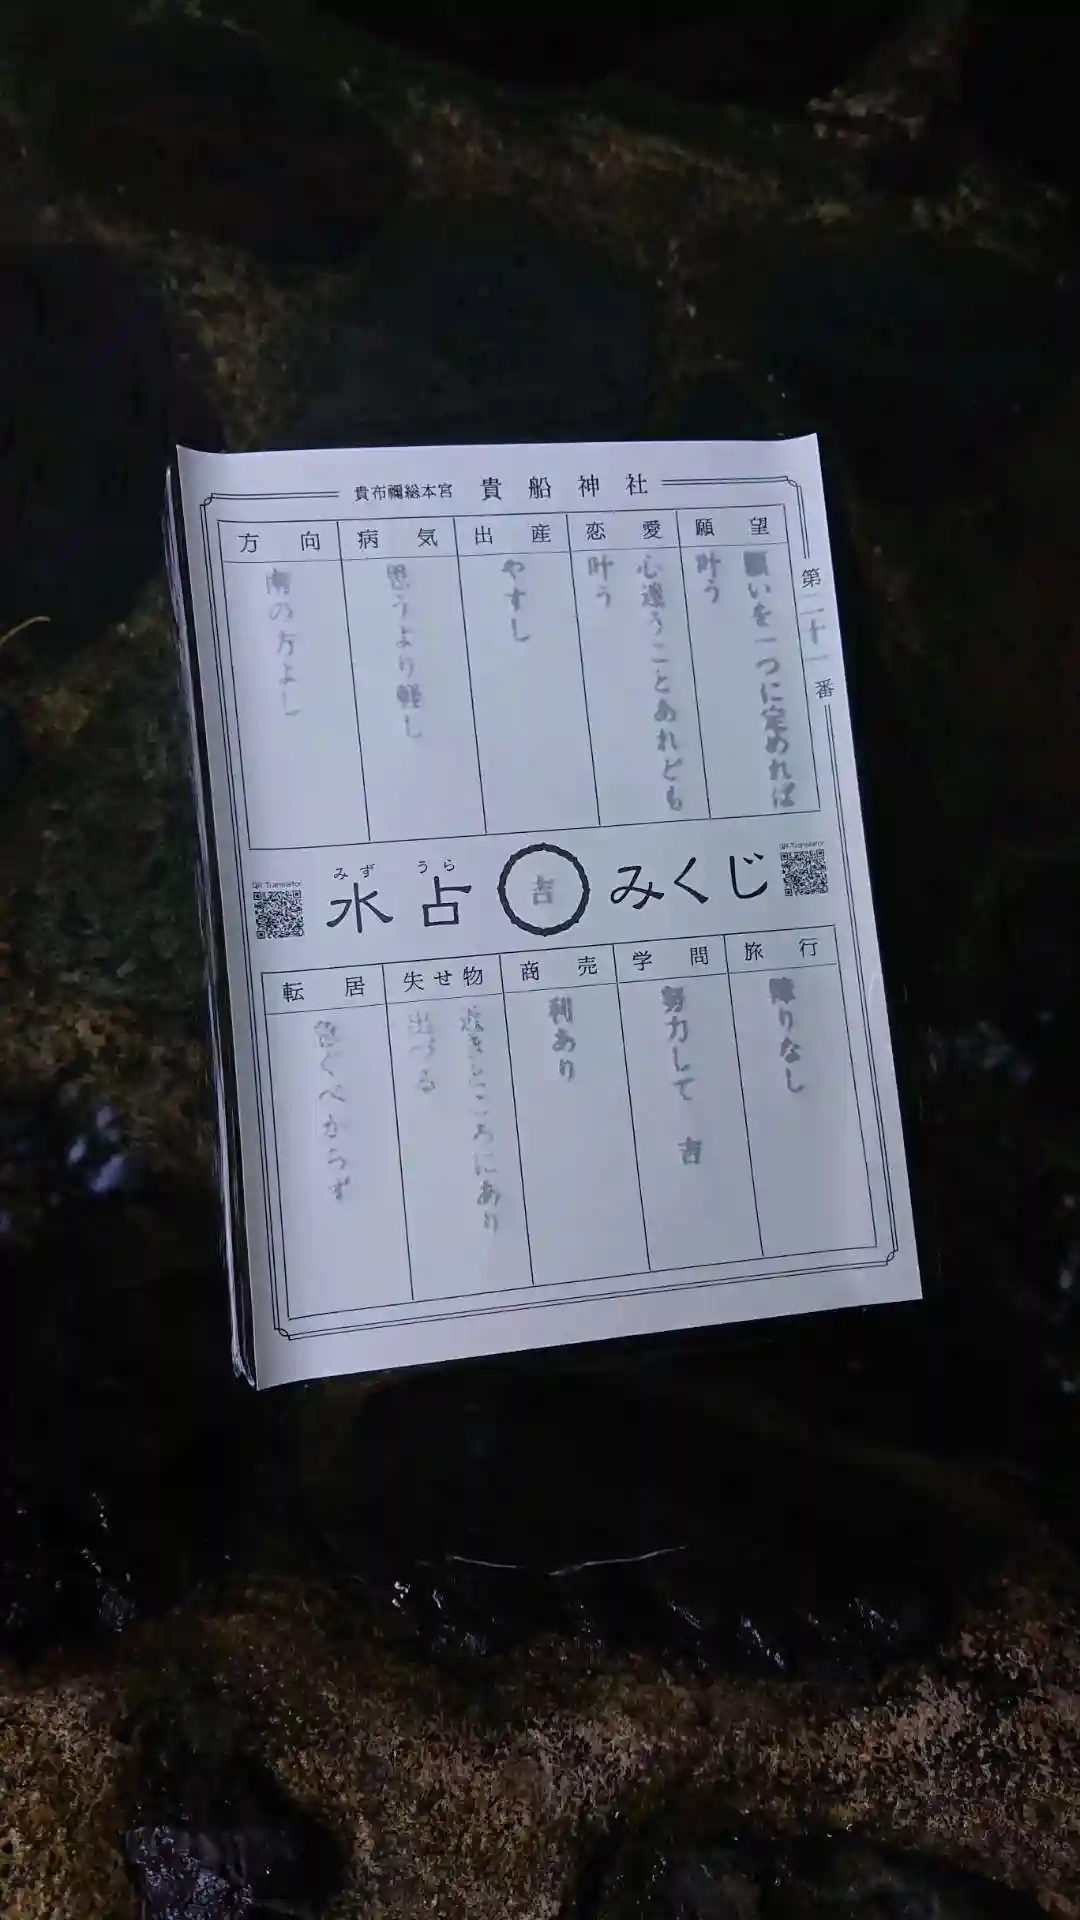 貴布禰総本宮 貴船神社
第二十一番
願望
願いを一つに定めれば
叶う
恋愛
心違うことあれども
叶う
出産
やすし
病気
思うより軽し
方向
南の方よし
みず うら
水占 吉 みくじ
QR Translator
QR Translator
旅行
障りなし
学問
努力して 吉
商売
利あり
失せ物
近きところにあり
出づる
転居
急ぐべからず